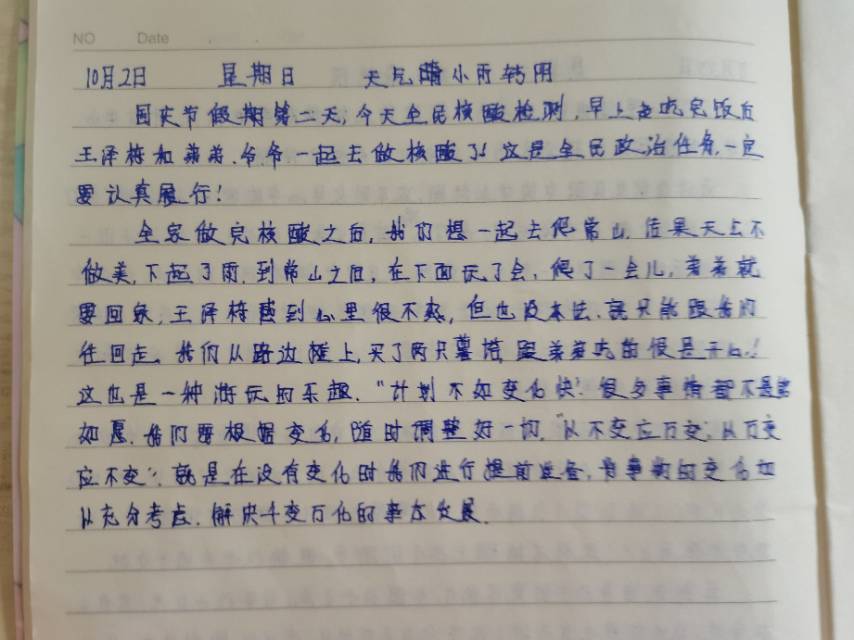 NO Date
10月2日 星期日 天气晴小雨转阴
国庆节假期第二天,今天全民核酸检测,早上去吃完饭后
王泽梅和弟弟、爷爷一起去做核酸了!这是全民政治任务,一定
要认真履行!
全家做完核酸之后,我们想一起去爬常山,结果天上不
做美,下起了雨.到常山之后,在下面玩了会,爬了一会儿,弟弟就
要回家,王泽梅感到心里很不愿,但也没办法.就只能跟我们
往回走。我们从路边摊上,买了两只薯塔,跟弟弟吃的很是开心!
这也是一种游玩的乐趣."计划不如变化快".很多事情都不是
如愿.我们要根据变化,随时调整好一切."以不变应万变",以万变
应不变".就是在没有变化时我们进行提前准备,为事物的变化加
以充分考虑.解决千变万化的事态发展.